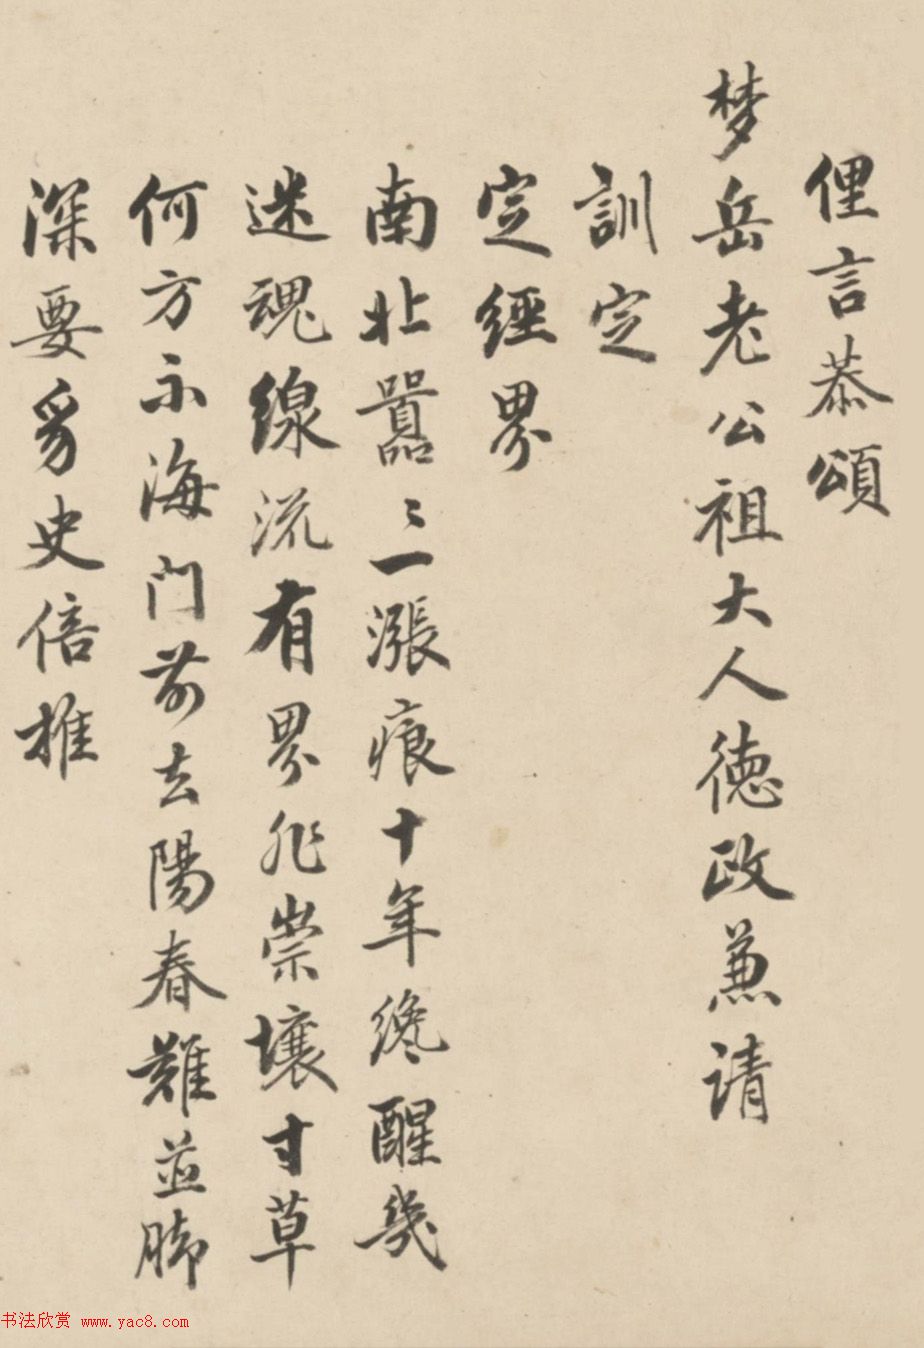 俚言恭頌
梦岳老公祖大人德政兼请
訓定
定經界
南北嚣〻一漲痕十年纔醒幾
迷魂線流有界非崇壤寸草
何方不海門前去陽春難並脚
深要史倍推
书法欣赏 www.yac8.com